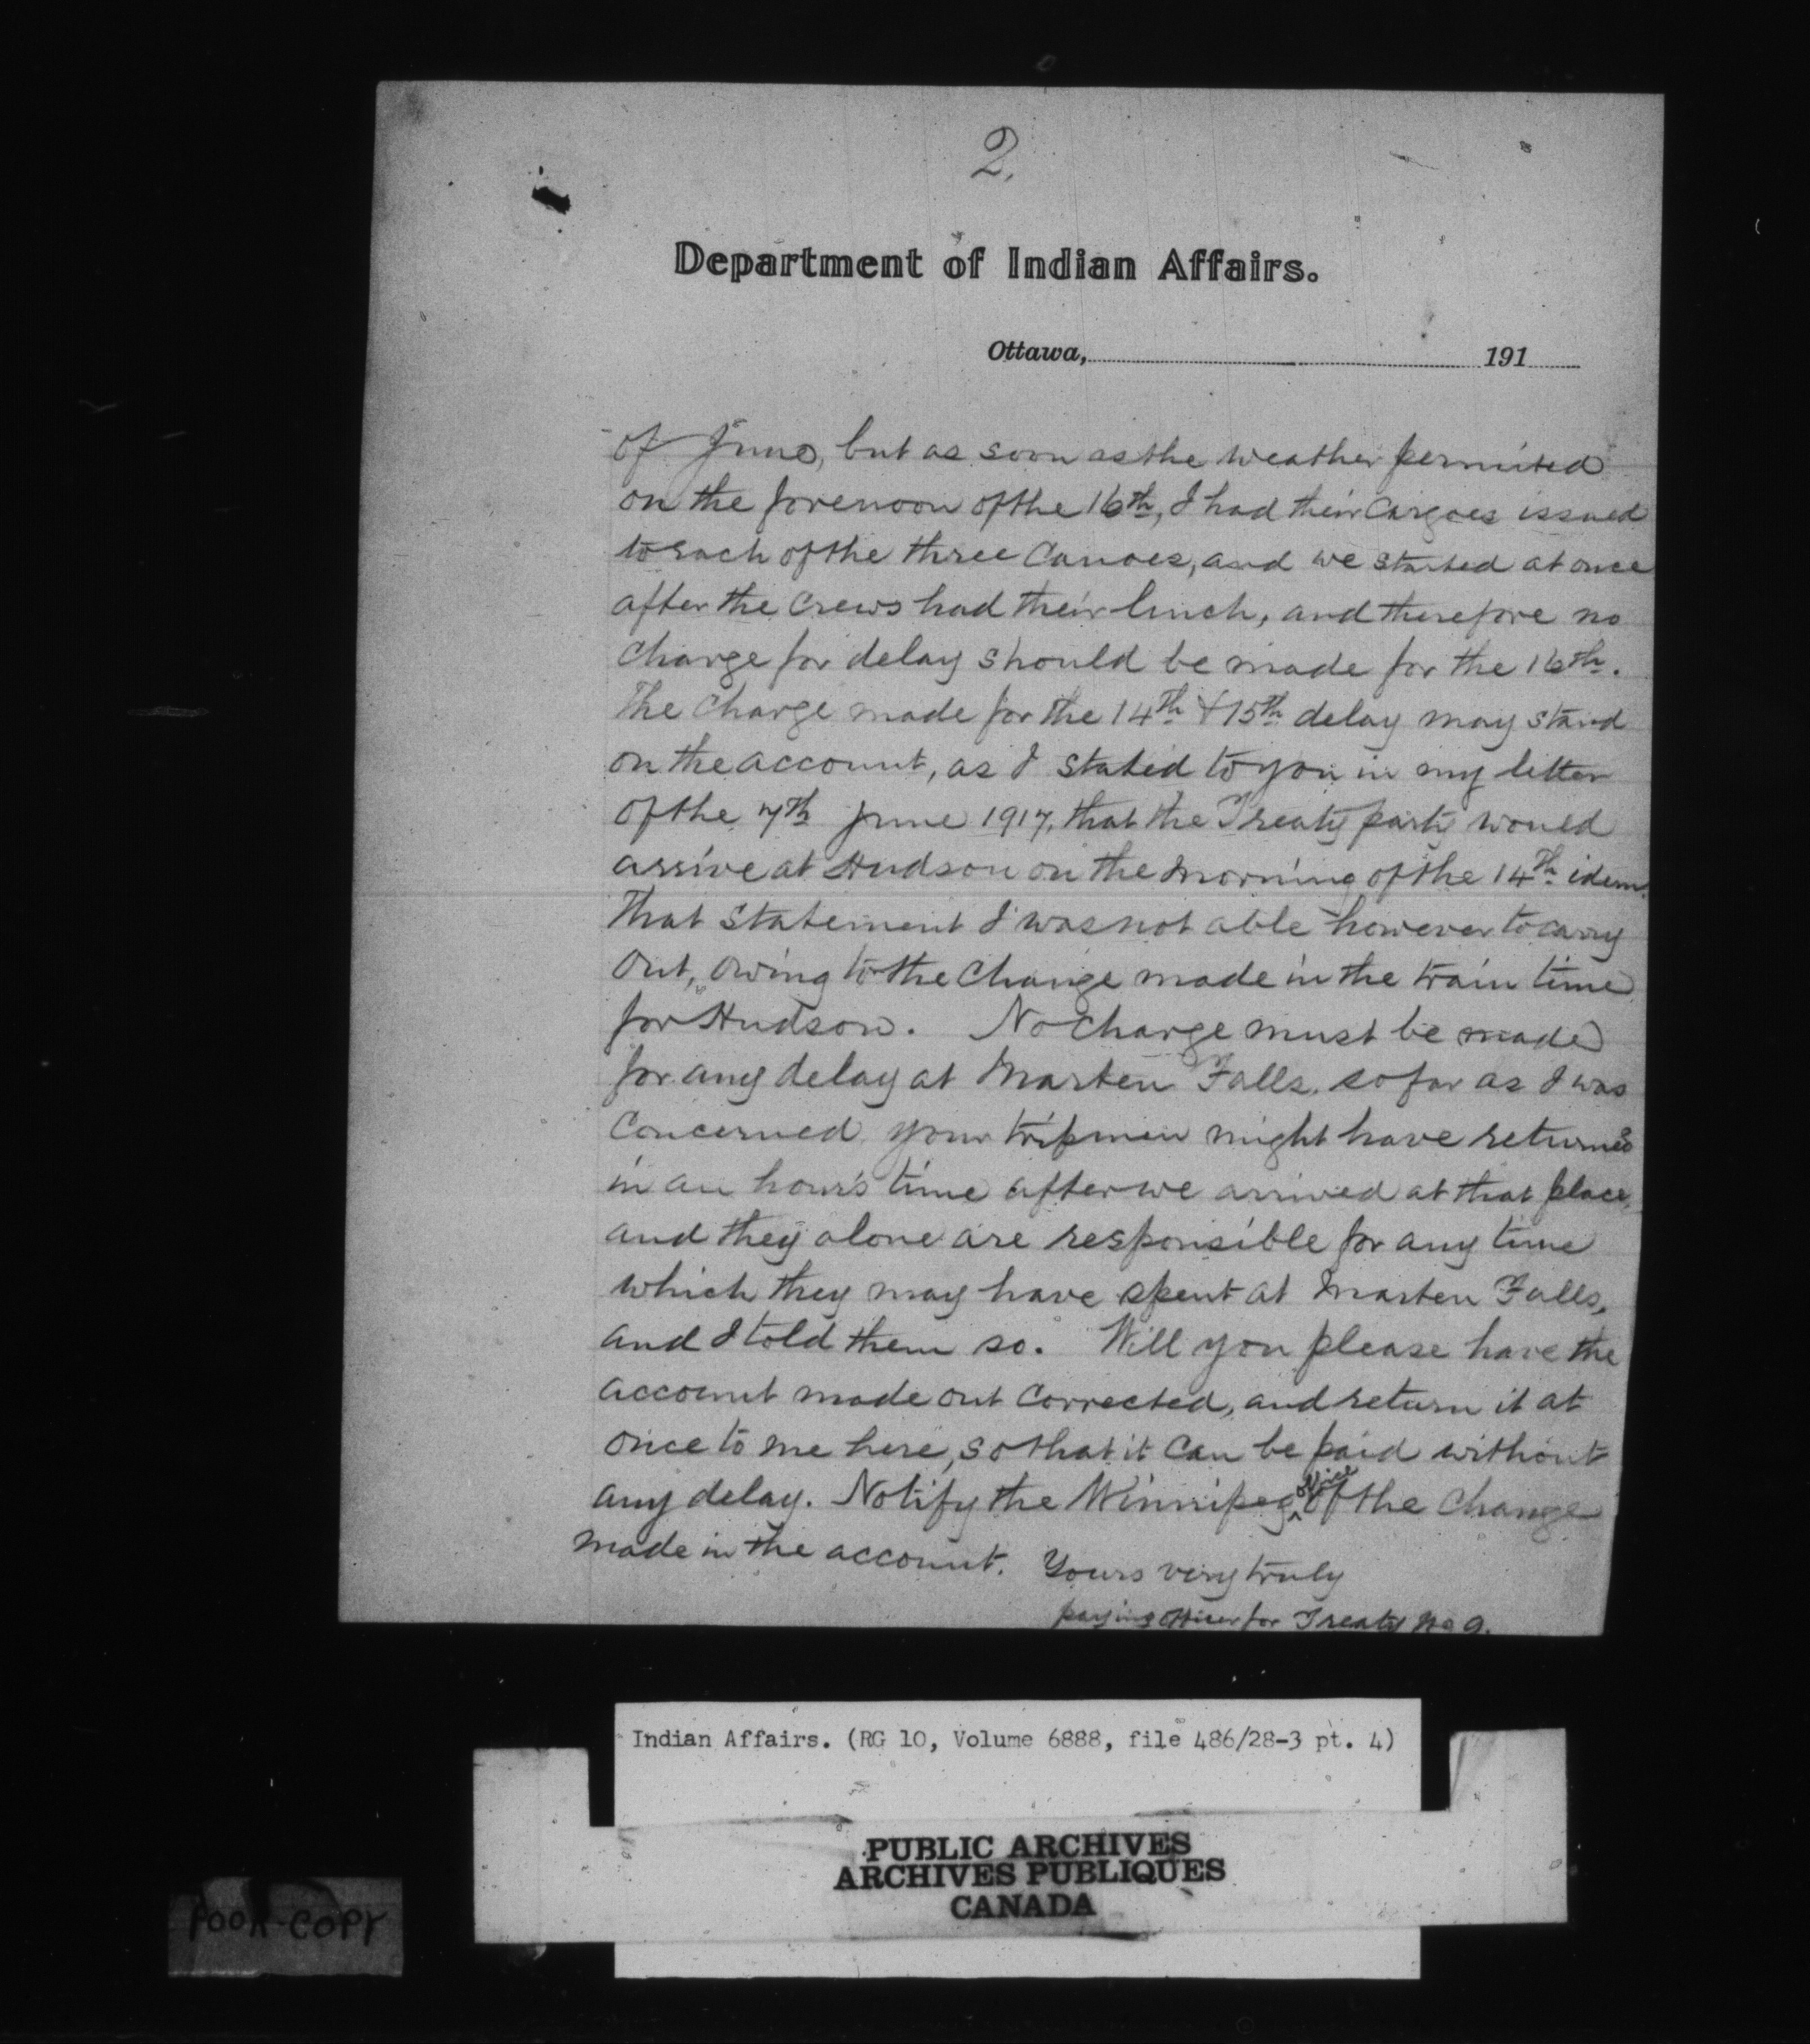 2.
Department of Indian Affairs.
Ottawa, 191
of June, but as soon as the weather permitted
on the forenoon of the 16th, I had their Cargoes issued
to each of the three Canoes, and we started at once
after the Crews had their lunch, and therefore no
charge for delay should be made for the 16th.
The Charge made for the 14th & 15th delay may stand
on the account, as I stated to you in my letter
of the 7th June 1917, that the Treaty party would
arrive at Hudson on the morning of the 14th idem.
That statement I was not able however to carry
out, owing to the Change made in the train time
for Hudson. No Charge must be made
for any delay at Marten Falls. so far as I was
Concerned your tripmen might have returned
in an hour's time after we arrived at that place,
and they alone are responsible for any time
which they may have spent at Marten Falls,
and I told them so. Will you please have the
account made out Corrected, and return it at
once to me here, so that it can be paid without
any delay. Notify the Winnipeg office of the Change
made in the account. Yours very truly
paying officer for Treaty No 9.
Indian Affairs. (RG 10, Volume 6888, file 486/28-3 pt. 4)
PUBLIC ARCHIVES
ARCHIVES PUBLIQUES
CANADA
POOR COPY